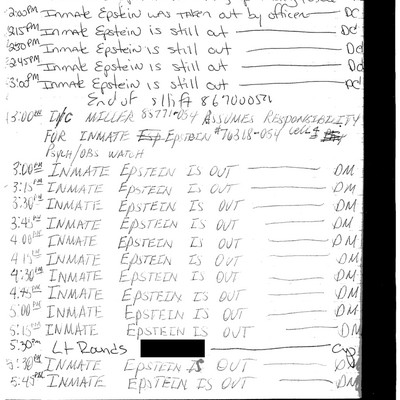 2:00PM Inmate Epstein was taken out by officer DC
2:15PM Inmate Epstein is still out DC
2:30PM Inmate Epstein is still out DC
2:45PM Inmate Epstein is still out DC
3:00PM Inmate Epstein is still out DC
End of shift
3:00PM I/C MILLER 85771-054 ASSUMES RESPONSIBILITY
FOR INMATE EPSTEIN #76318-054 CELL 4
PSYCH/OBS WATCH
3:00PM INMATE EPSTEIN IS OUT DM
3:15PM INMATE EPSTEIN IS OUT DM
3:30PM INMATE EPSTEIN IS OUT DM
3:45PM INMATE EPSTEIN IS OUT DM
4:00PM INMATE EPSTEIN IS OUT DM
4:15PM INMATE EPSTEIN IS OUT DM
4:30PM INMATE EPSTEIN IS OUT DM
4:45PM INMATE EPSTEIN IS OUT DM
5:00PM INMATE EPSTEIN IS OUT DM
5:15PM INMATE EPSTEIN IS OUT DM
5:30PM Lt Rounds
5:30PM INMATE EPSTEIN IS OUT DM
5:45PM INMATE EPSTEIN IS OUT DM